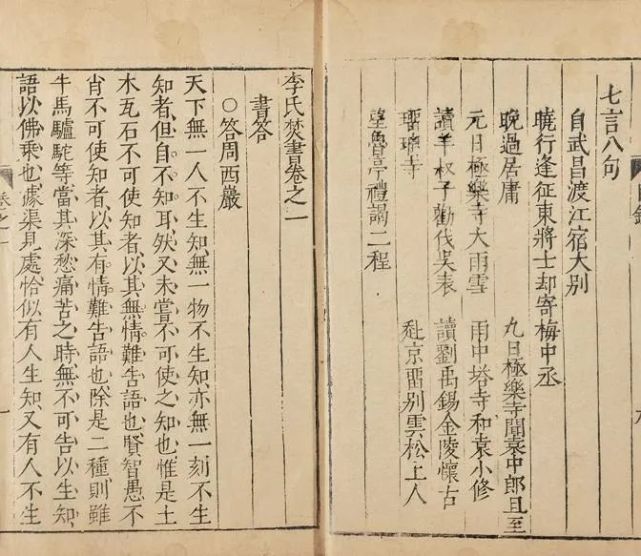 七言八句
自武昌渡江宿大别
曉行逢征東將士却寄梅中丞
晚過居庸 九日極樂寺聞袁中郎且至
元日極樂寺大雨雪 雨中塔寺和袁小修
讀羊叔子勸伐吳表 讀劉禹錫金陵懷古
琉璃寺 赴京畱别雲松上人
望魯亭禮謁二程
李氏焚書卷之一
書荅
○答周西巖
天下無一人不生知無一物不生知亦無一刻不生
知者但自不知耳然又未嘗不可使之知也惟是土
木瓦石不可使知者以其無情難告語也賢智愚不
肖不可使知者以其有情難告語也除是二種則雖
牛馬驢駝等當其深愁痛苦之時無不可告以生知
語以佛乘也據渠見處恰似有人生知又有人不生
卷之一